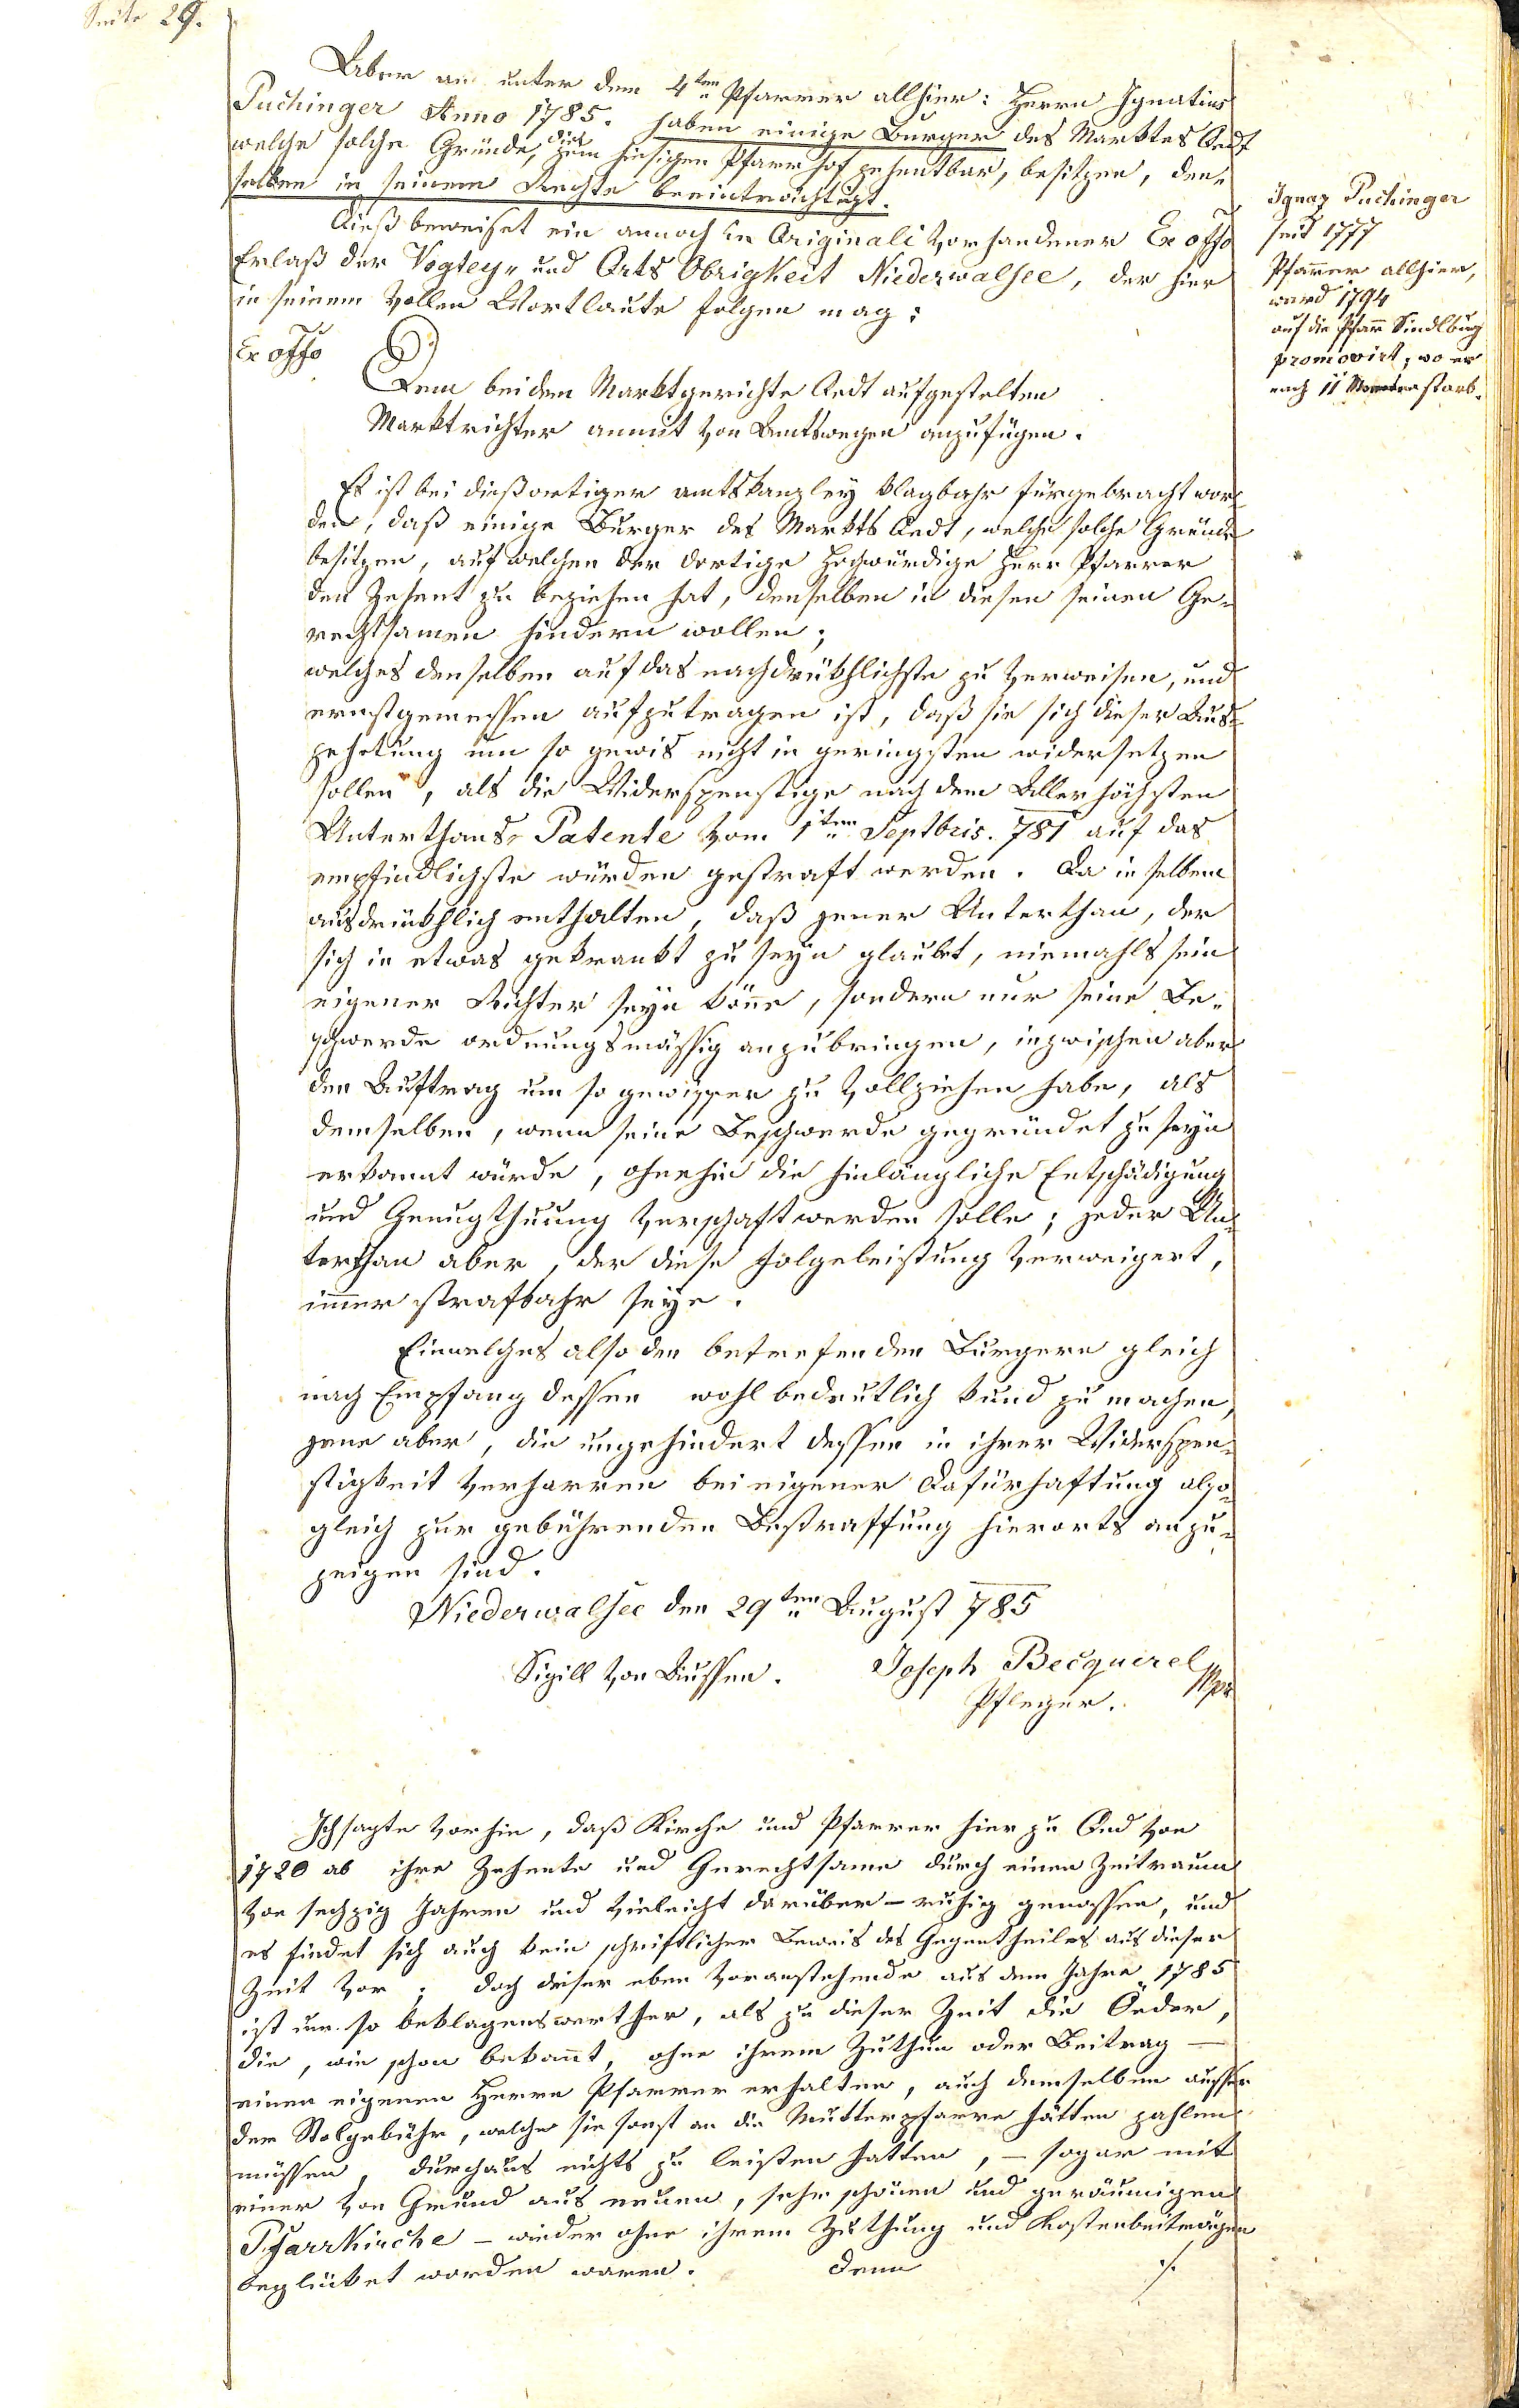 Seite 29.
Aber an unter dem 4ten Pfarrer allhier: Herrn Ignatius
Puchinger Anno 1785. haben einige Burger des Marktes Aedt
welche solche Gründe, die zum hiesigen Pfarrhof zehentbar, besitzen, den-
selben in seinem Rechte beeinträchtigt.
Dieß beweiset ein annoch in Originali vorhandener Ex offo
Erlaß der Vogtey- und Orts Obrigkeit Niederwalsee, der hier
in seinem vollen Wortlaute folgen mag:
Ex offo
Dem bei dem Marktgerichte Aedt aufgestelten
Marktrichter anmit von Amtswegen anzufügen.
Es ist bei dießortiger amtskanzley klagbahr fürgebracht wor-
den, daß einige Burger des Markts Aedt, welche solche Gründe
besitzen, auf welchen der dortige Hochwürdige Herr Pfarrer
den Zehent zu beziehen hat, denselben in diesen seinen Ge-
rechtsamen hindern wollen;
welches denselben auf das nachdrükhlichste zu verweisen, und
ernstgemessen aufzutragen ist, daß sie sich dieser Aus-
zehetung um so gewis nicht in geringsten widersetzen
sollen, als die Widerspenstige nach dem Allerhöchsten
Unterthans- Patente vom 1ten Septbris. 781 auf das
empfindlichste würden gestraft werden. Da in selbem
ausdrükhlich enthalten, daß jener Unterthan, der
sich in etwas gekrankt zu seyn glaubt, niemahls sein
eigener Richter seyn könne, sondern nur seine Be-
schwerde ordnungsmässig anzubringen, inzwischen aber
den Auftrag um so gewisser zu vollziehen habe, als
demselben, wenn seine Beschwerde gegründet zu seyn
erkannt würde, ohnehin die hinlängliche Entschädigung
und Genugthuung verschaft werden solle; jeder Un-
terthan aber, der diese Folgeleistung verweigert,
immer strafbahr seye.
Einwelches also den betrefenden Burgern gleich
nach Empfang dessen wohl bedeutlich kund zu machen,
jene aber, die ungehindert dessen in ihrer Widerspen-
stigkeit verharren bei eigener Dafürhaftung also-
gleich zur gebührenden Bestraffung hierorts anzu-
zeigen sind.
Niederwalsee den 29ten August 785
Sigill von Aussen. Joseph Becquerel
Pfleger. Mpr
Ich sagte vorhin, daß Kirche und Pfarrer hier zu Oed von
1720 ab ihre Zehente und Gerechtsame durch einen Zeitraum
von sechzig Jahren und vieleicht darüber – ruhig genossen, und
es findet sich auch kein schriftlicher Beweis des Gegentheiles aus dieser
Zeit vor; doch dieser eben voranstehende aus dem Jahre 1785
ist um so beklagenswerther, als zu dieser Zeit die Oeder,
die, wie schon bekannt, ohne ihrem Zuthun oder Beitrag –
einen eigenen Herrn Pfarrer erhalten, auch demselben ausser
der Stolgebühr, welche sie sonst an die Mutterpfarre hätten zahlen
müssen, durchaus nichts zu leisten hatten, – sogar mit
einer von Grund aus neuen, sehr schönen und geräumigen
Pfarrkirche – wieder ohne ihrem Zuthung und Kostenbeiträgen
beglüket worden waren. Denn ./.
Ignaz Puchinger
seit 1777
Pfarrer allhier,
ward 1794
auf die Pfarr Sindlburg
promovirt, wo er
nach 11 Monaten starb.